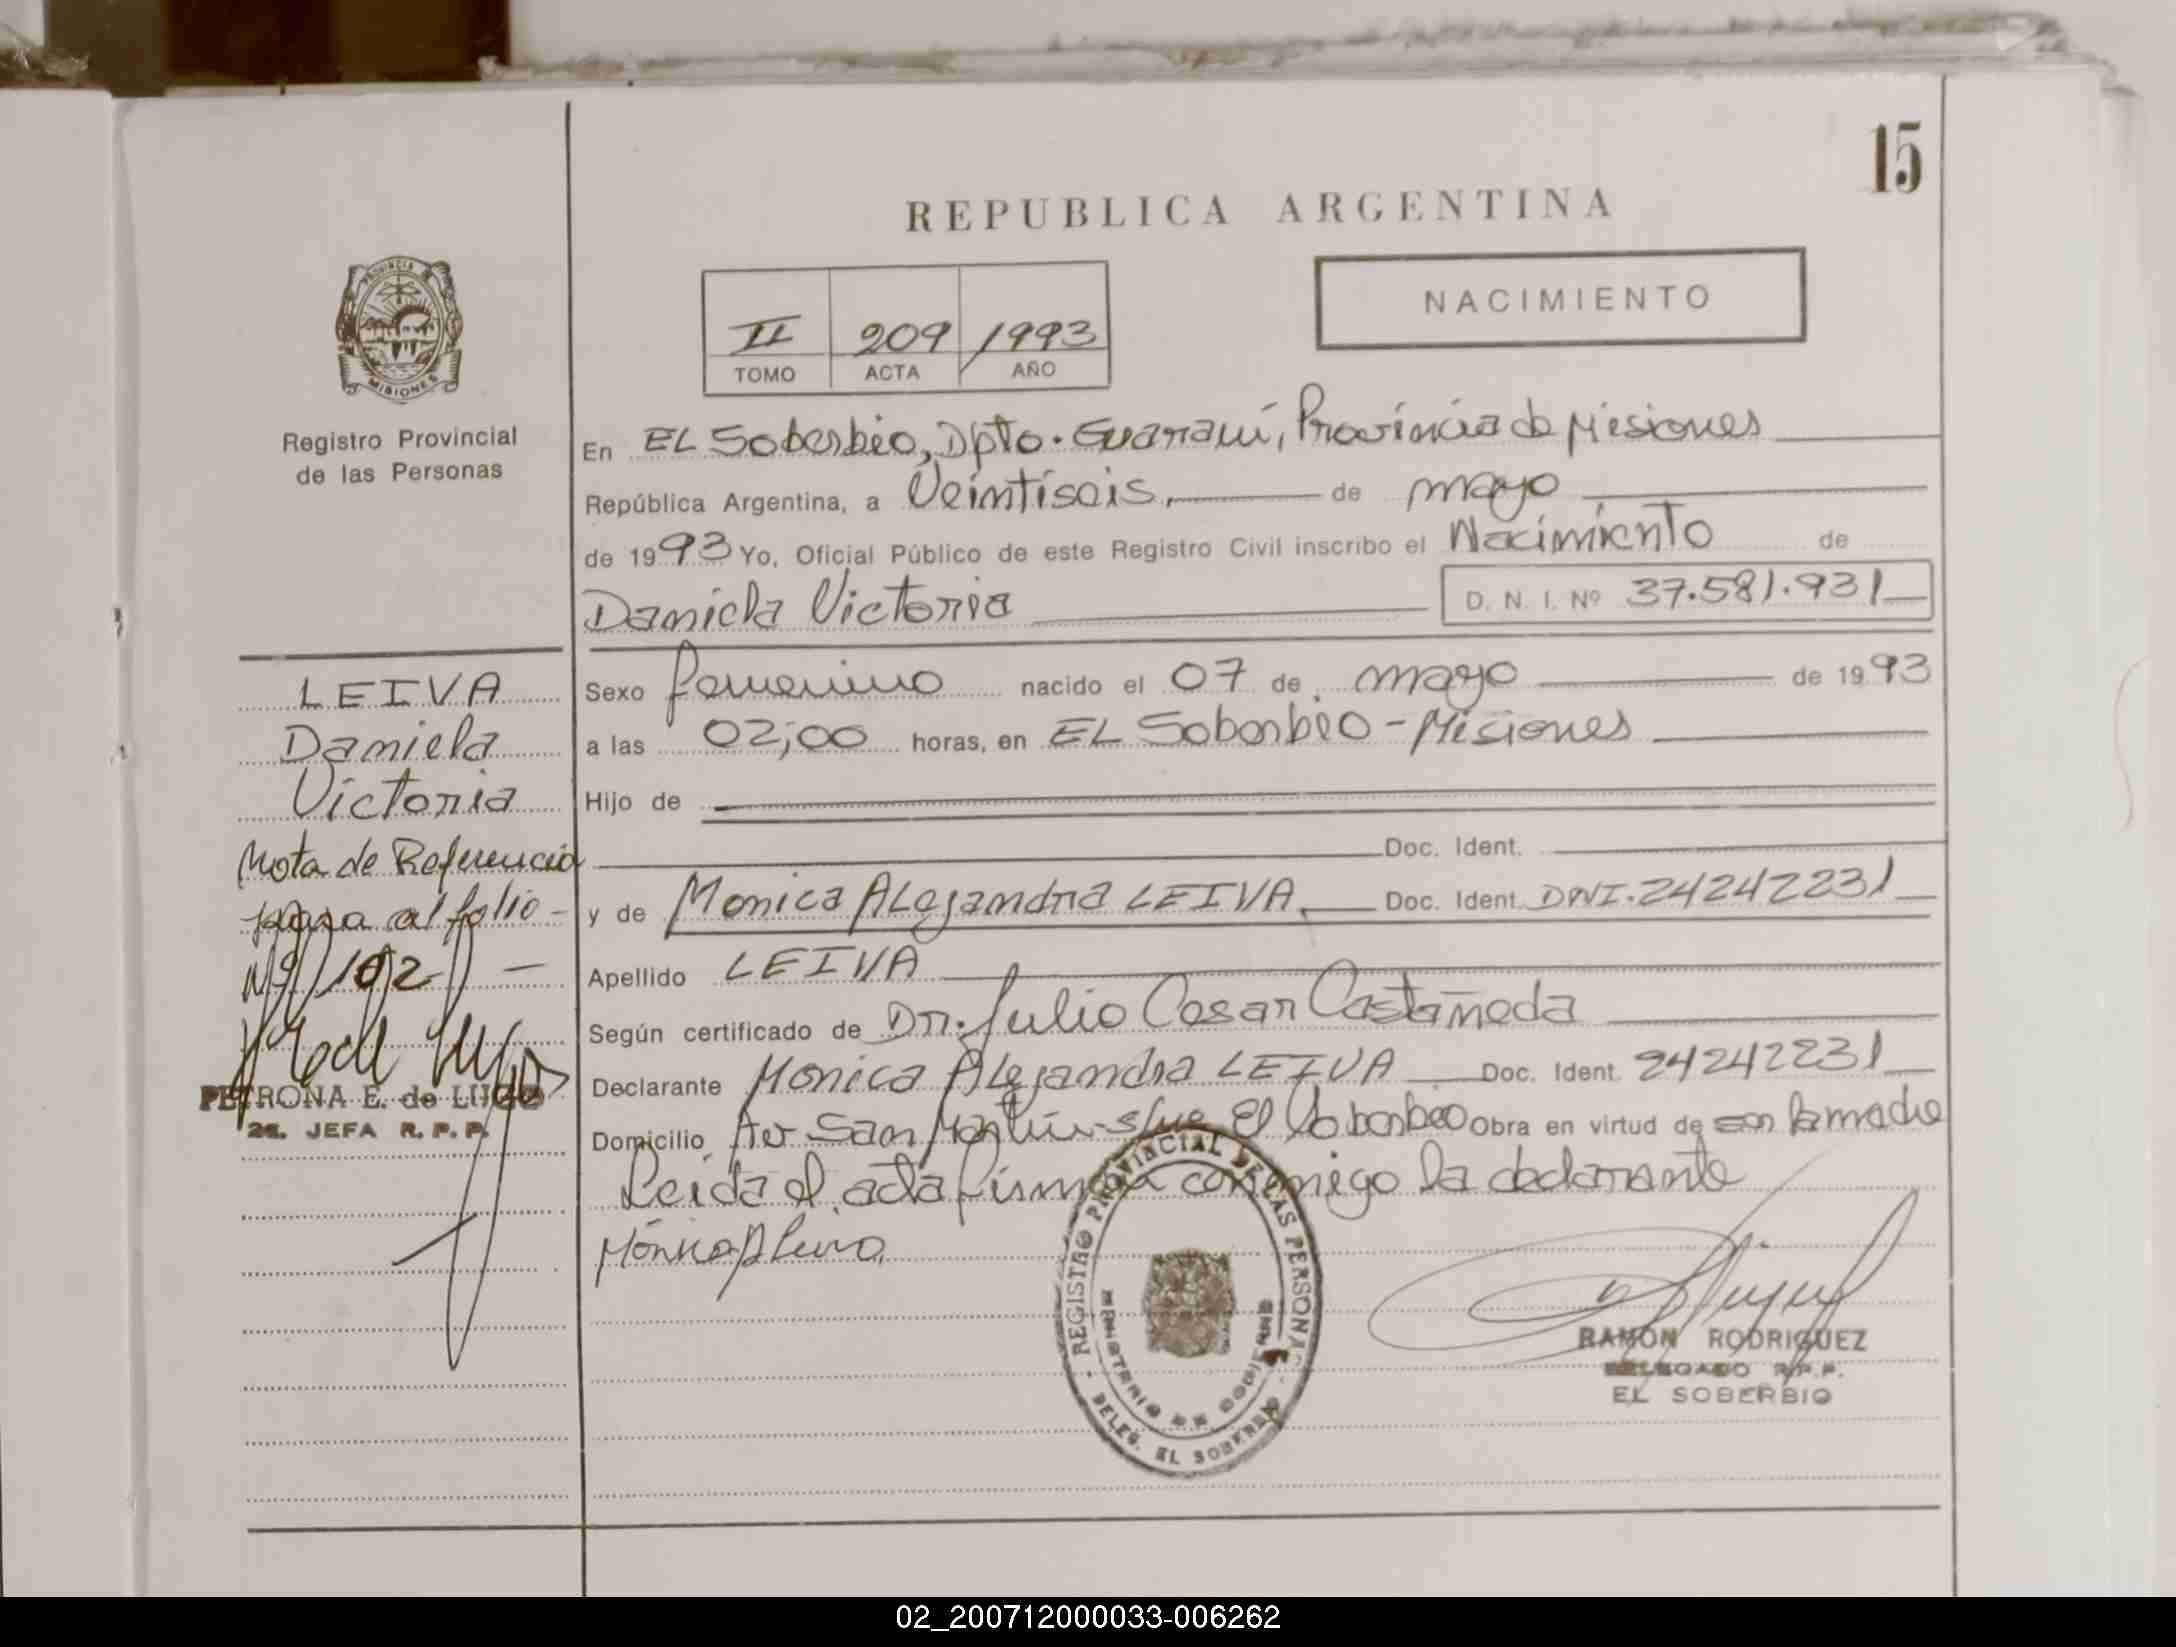 15
REPUBLICA ARGENTINA
NACIMIENTO
II 209 1993
TOMO ACTA AÑO
PROVINCIA DE MISIONES
Registro Provincial
de las Personas
En EL Soberbio, Dpto. Guaraní, Provincia de Misiones
República Argentina, a Veintiseis, de mayo
de 1993 Yo, Oficial Público de este Registro Civil inscribo el Nacimiento de
Daniela Victoria D. N. I. Nº 37.581.931
LEIVA
Daniela
Victoria
Nota de Referencia
pasa al folio -
Nº 192 -
PETRONA E. de LUGO
2a. JEFA R. P. P.
Sexo femenino nacido el 07 de mayo de 1993
a las 02;00 horas, en EL Soberbio - Misiones
Hijo de
Doc. Ident.
y de Monica ALejandra LEIVA, Doc. Ident. DNI. 24242231
Apellido LEIVA
Según certificado de Dr. Julio Cesar Castañeda
Declarante Monica ALejandra LEIVA Doc. Ident. 24242231
Domicilio Av San Martín s/nº El Soberbio Obra en virtud de ser la madre
Leida el acta firma conmigo la declarante
Mónica A Leiva
REGISTRO PROVINCIAL DE LAS PERSONAS
MINISTERIO DE GOBIERNO
DELEG. EL SOBERBIO
RAMON RODRIGUEZ
DELEGADO R.P.P.
EL SOBERBIO
02_200712000033-006262